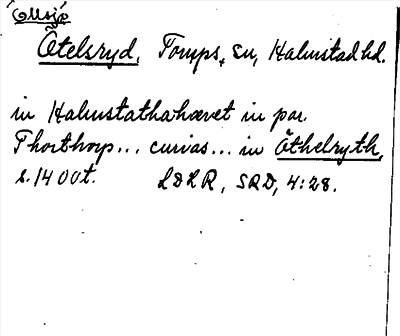 Ömsjö
Åtelsryd, Torups sn, Halmstad hd.
in Halmstathahæret in par.
Thorthorp... curias... in Äthelryth,
s. 1400 t. LDLR, SRD, 4:28.